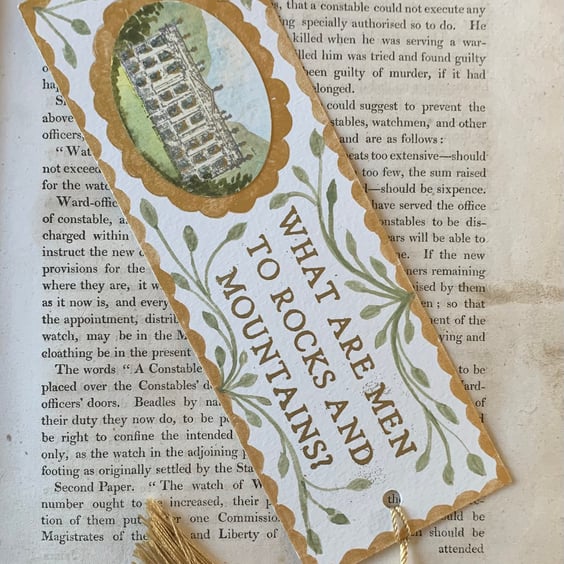 WHAT ARE MEN
TO ROCKS AND
MOUNTAINS?
above
officers,
"Wat
not exceed
for the watc
Ward-offic
of constable, a
charged within
instruct the new c
provisions for the
where they are, it w
as it now is, and every
the appointment, distrib
watch, may be in the M
cloathing be in the present
The words "A Constable
placed over the Constables' d
officers' doors. Beadles by na
their duty they now do, to be p
be right to confine the intended
only, as the watch in the adjoining p
footing as originally settled by the Sta
Second Paper. "The watch of W
number ought to increased, their p
tion of them put or one Commissio
Magistrates of the and Liberty of
s, that a constable could not execute any
ng specially authorised so to do. He
killed when he was serving a war-
lled him was tried and found guilty
been guilty of murder, if it had
olonged.
could suggest to prevent the
stables, watchmen, and other
and are as follows:
eats too extensive—should
too few, the sum raised
l—should be sixpence.
have served the office
onstables to be dis-
ears will be able to
e. If the new
ners remaining
ised by them
en; so that
ment of the
ying and
to be
Ward-
of
be
the
be
should be
attended